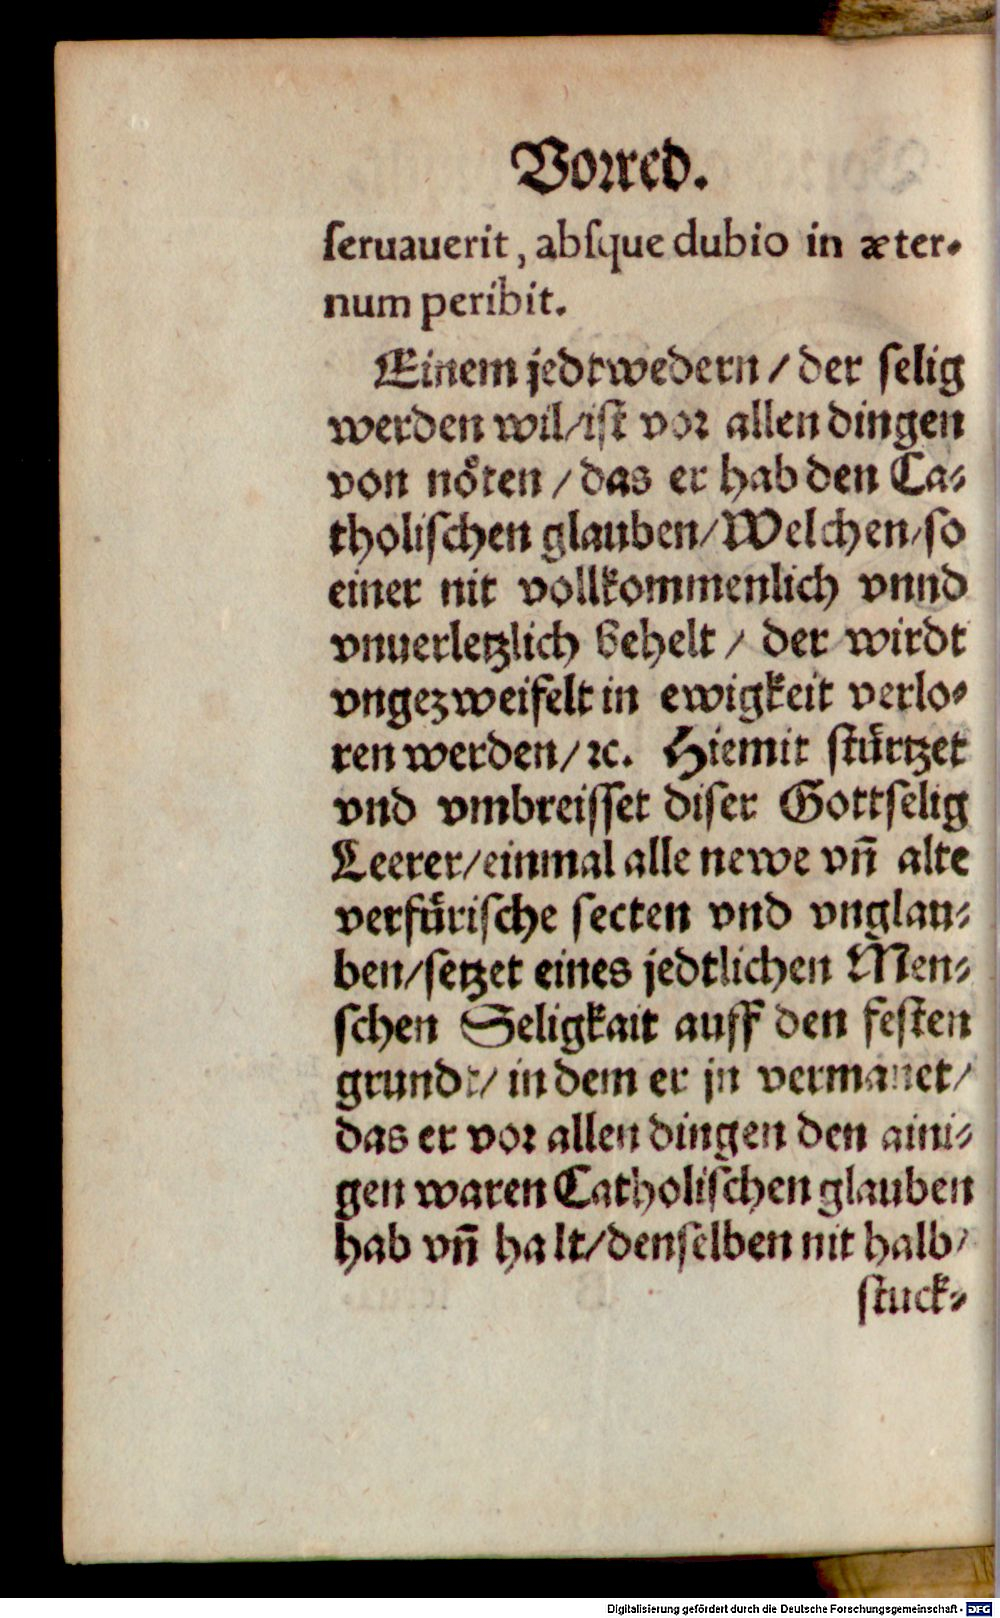 Vorred.
ſeruauerit, abſque dubio in æter-
num peribit.
Einem jedtwedern / der ſelig
werden wil / iſt vor allen dingen
von nöten / das er hab den Ca-
tholiſchen glauben / Welchen / ſo
einer nit vollkommenlich vnnd
vnuerletzlich behelt / der wirdt
vngezweifelt in ewigkeit verlo-
ren werden / ꝛc. Hiemit ſtürtzet
vnd vmbreiſſet diſer Gottſelig
Leerer / einmal alle newe vn̄ alte
verfüriſche ſecten vnd vnglau-
ben / ſetzet eines jedtlichen Men-
ſchen Seligkait auff den feſten
grundt / in dem er jn vermanet /
das er vor allen dingen den aini-
gen waren Catholiſchen glauben
hab vn̄ halt / denſelben nit halb /
ſtuck-
Digitalisierung gefördert durch die Deutsche Forschungsgemeinschaft - DFG